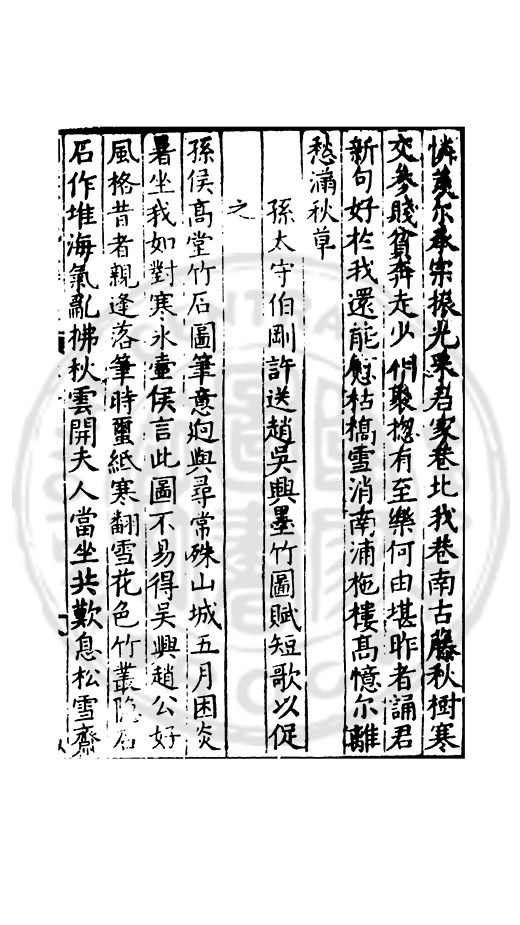 憐蒐尓承宗振光采君家巷北我巷南古藤秋樹寒
交參賤貧奔走少俏聚揔有至樂何由堪昨者誦君
新句好扵我還能慰枯槁雪消南浦柂樓髙憶尓離
愁滿秋草
孫太守伯剛許送趙吳興墨竹圖賦短歌以促
之
孫侯髙堂竹石圖筆意逈與尋常殊山城五月困炎
暑坐我如對寒氷壷侯言此圖不易得吴興趙公好
風格昔者親逢落筆時璽紙寒翻雪花色竹叢隐石
石作堆海氣亂拂秋雲開夫人當坐共歎息松雪齋